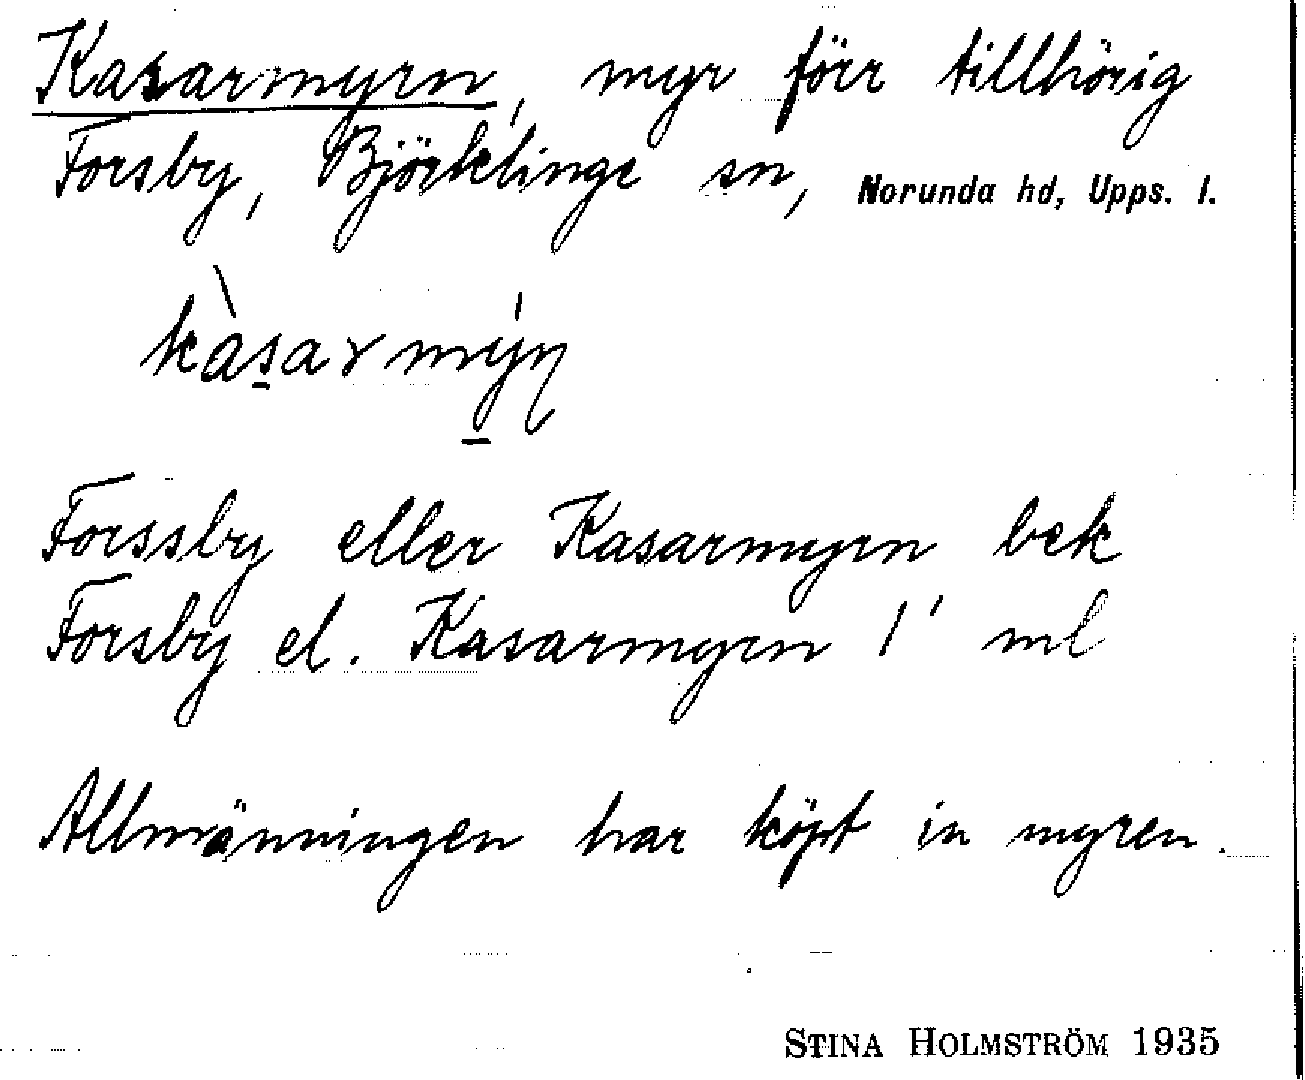 Kasarmyrn, myr förr tillhörig
Forsby, Björklinge sn, Norunda hd, Upps. l.
kàs̱armýṉ
Forssby eller Kasarmyrn bek
Forsby el. Kasarmyrn 1' ml
Allmänningen har köpt in myren.
STINA HOLMSTRÖM 1935